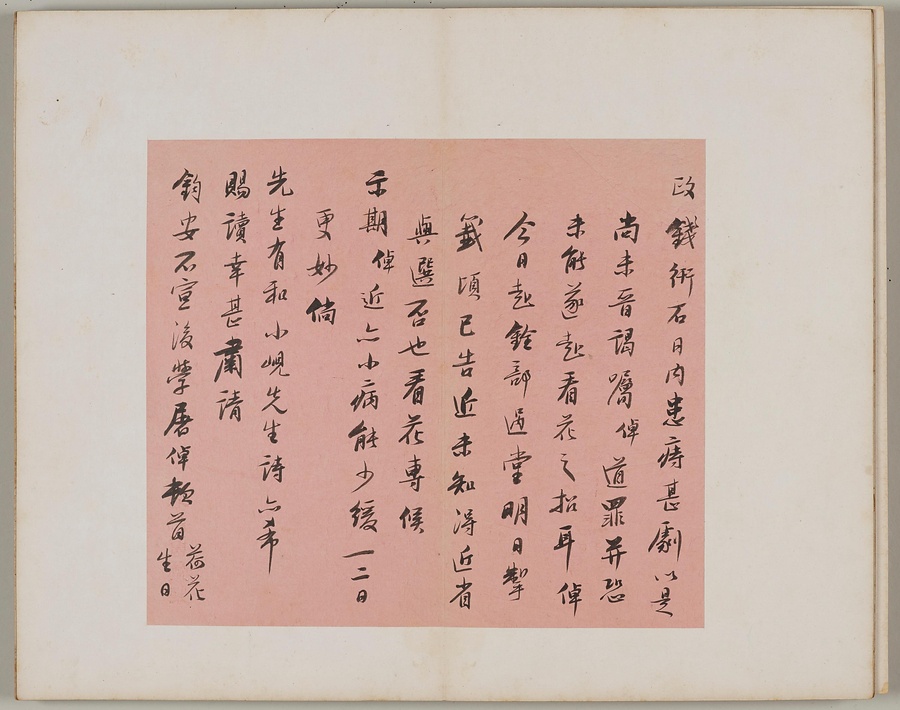 政錢衎石日內患痔甚劇以是
尚未晉謁囑倬道罪並恐
未能遂赴看花之招耳倬
今日赴銓部過堂明日掣
籤頃已告近未知得近省
與選否也看花專候
示期倬近亦小病能少緩一二日
更妙倘
先生有和小峴先生詩亦希
賜讀幸甚肅請
鈞安不宣後學屠倬頓首
荷花
生日